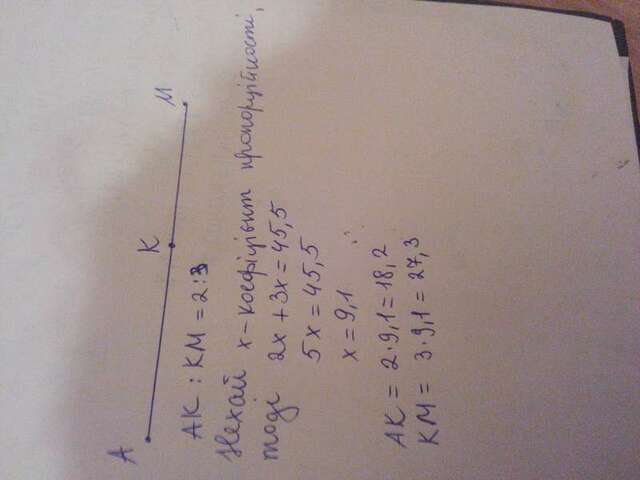 A K M
AK : KM = 2:3
Нехай x - коефіцієнт пропорційності,
тоді 2x + 3x = 45,5
5x = 45,5
x = 9,1
AK = 2·9,1 = 18,2
KM = 3·9,1 = 27,3